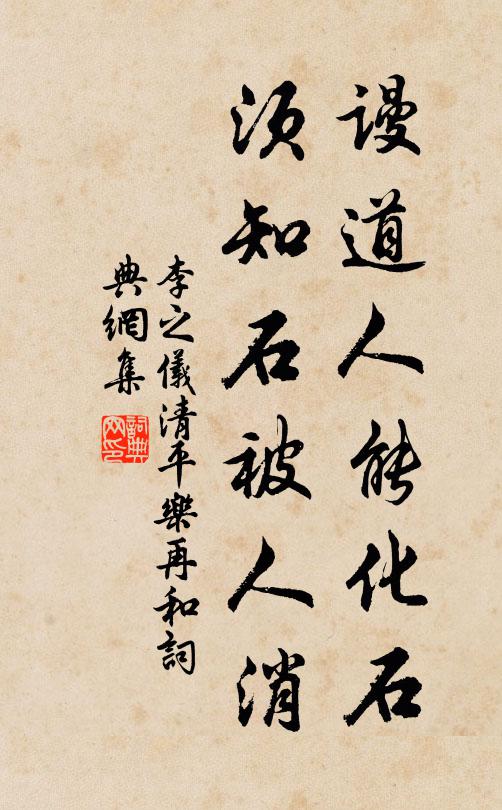 謾道人能化石
須知石被人消
李之儀清平樂再和詞
典網集
詞典
网印